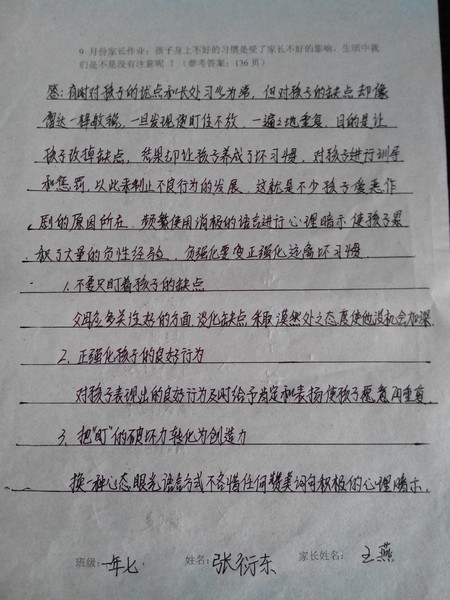 9 月份家长作业:孩子身上不好的习惯是受了家长不好的影响,生活中我
们是不是没有注意呢?(参考答案:136 页)
答:有时对孩子的优点和长处习以为常,但对孩子的缺点却像
雷达一样敏锐,一旦发现便盯住不放,一遍遍地重复,目的是让
孩子改掉缺点,结果却让孩子养成了坏习惯,对孩子进行训导
和惩罚,以此来制止不良行为的发展,这就是不少孩子爱恶作
剧的原因所在,频繁使用消极的语言进行心理暗示使孩子累
积了大量的负性经验,负强化要变正强化远离坏习惯.
1、不要只盯着孩子的缺点
多关注好的方面,淡化缺点采取漠然处之态度使他没机会加深.
2、正强化孩子的良好行为
对孩子表现出的良好行为及时给予肯定和表扬使孩子愿意再重复
3、把"盯"的破坏力转化为创造力
换一种心态眼光语言方式不吝惜任何赞美词句积极的心理暗示.
班级:一年七 姓名:张衍东 家长姓名:王燕